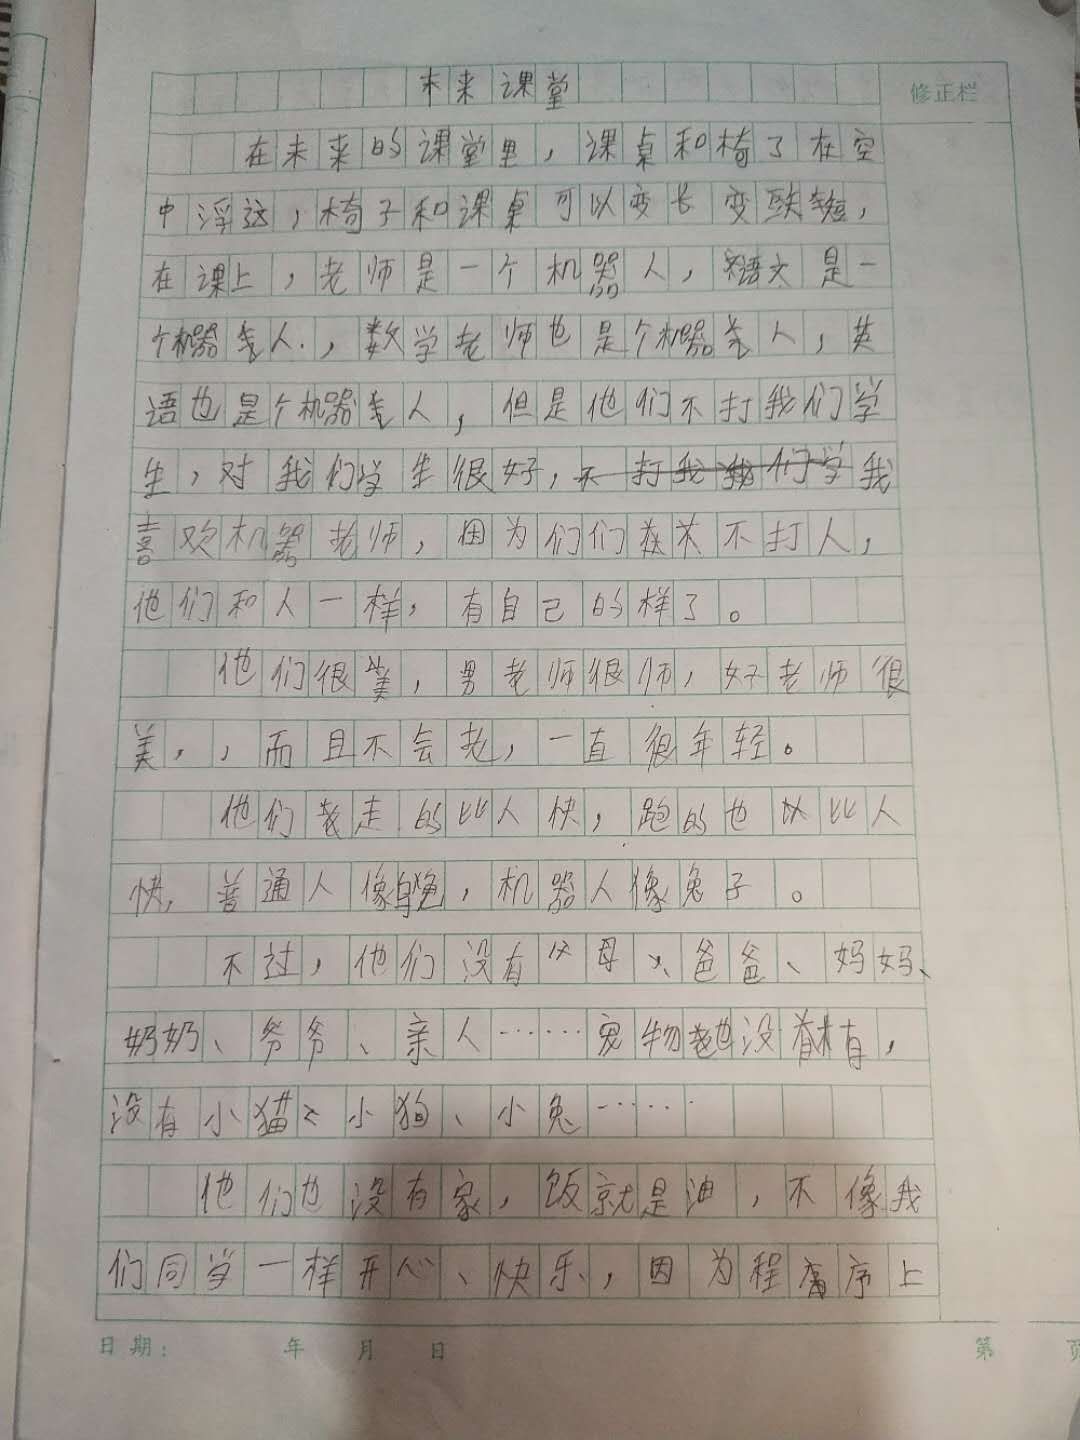 未来课堂
修正栏
在未来的课堂里，课桌和椅了在空
中浮这，椅子和课桌可以变长变短，
在课上，老师是一个机器人，语文是一
个机器人，数学老师也是个机器人，英
语也是个机器人，但是他们不打我们学
生，对我们学生很好，不打我我们学我
喜欢机器老师，因为们们从不打人，
他们和人一样，有自己的样了。
他们很美，男老师很师，好老师很
美，，而且不会老，一直很年轻。
他们走的比人快，跑的也以比人
快，普通人像乌龟，机器人像兔子。
不过，他们没有父母、爸爸、妈妈、
奶奶、爷爷、亲人……宠物也没有，
没有小猫、小狗、小兔……
他们也没有家，饭就是油，不像我
们同学一样开心、快乐、，因为程序上
日期： 年 月 日
第 页